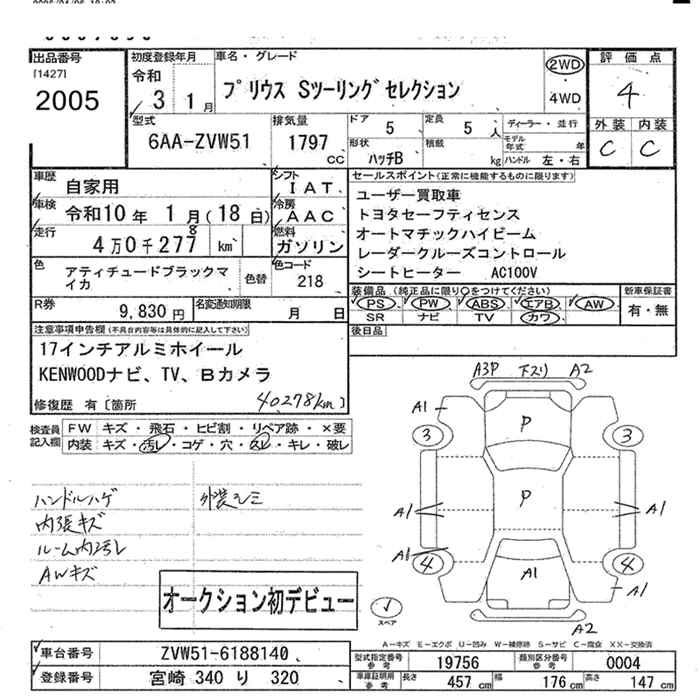 出品番号
[1427]
2005
初度登録年月
令和
3 1月
車名・グレード
プリウス Sツーリングセレクション
2WD
4WD
評価点
4
外装 内装
C C
型式
6AA-ZVW51
排気量
1797
cc
ドア 5
定員 5 人
形状 ハッチB
積載 kg
ディーラー・並行
モデル年式 年
ハンドル 左・右
車歴 自家用
車検 令和10年 1月(18日)
走行 4万0千277 km
8
シフト IAT
冷房 AAC
燃料 ガソリン
色 アティチュードブラックマイカ
色替
色コード 218
R券 9,830円
名変通知期限 月 日
セールスポイント(正常に機能するものに限ります)
ユーザー買取車
トヨタセーフティセンス
オートマチックハイビーム
レーダークルーズコントロール
シートヒーター AC100V
装備品(純正品に限り○をつけてください)
PS PW ABS エアB AW
SR ナビ TV カワ
新車保証書
有・無
後日品
注意事項申告欄(不具合内容等は具体的に記入して下さい)
17インチアルミホイール
KENWOODナビ、TV、Bカメラ
修復歴 有[箇所 40278km]
検査員記入欄
FW キズ・飛石・ヒビ割・リペア跡・×要
内装 キズ・汚レ・コゲ・穴・スレ・キレ・破レ
ハンドルハゲ
外装シミ
内張キズ
ルーム内汚レ
AWキズ
オークション初デビュー
A3P 下スリ A2
A1
3 P 3
P
A1 A1
A1
4 A1 4
A1
スペア
A2
A-キズ E-エクボ U-凹み W-補修跡 S-サビ C-腐食 XX-交換済
車台番号 ZVW51-6188140
登録番号 宮崎 340 り 320
型式指定番号 参考 19756
類別区分番号 参考 0004
車庫証明用 参考 長さ 457 cm 幅 176 cm 高さ 147 cm